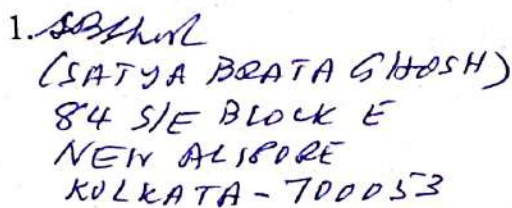 1. SBGhosh
(SATYA BRATA GHOSH)
84 S/E BLOCK E
NEW ALIPORE
KOLKATA - 700053